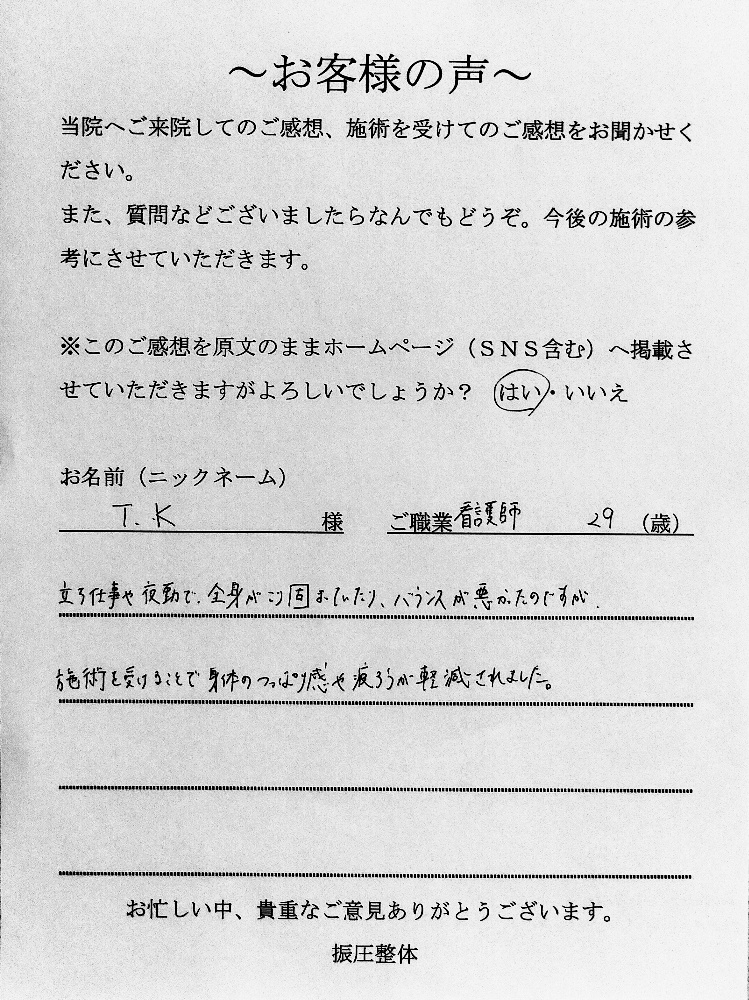 ～お客様の声～
当院へご来院してのご感想、施術を受けてのご感想をお聞かせく
ださい。
また、質問などございましたらなんでもどうぞ。今後の施術の参
考にさせていただきます。
※このご感想を原文のままホームページ（SNS含む）へ掲載さ
せていただきますがよろしいでしょうか？ はい・いいえ
お名前（ニックネーム）
T.K 様 ご職業 看護師 29 （歳）
立ち仕事や夜勤で、全身がこり固まっていたり、バランスが悪かったのですが、
施術を受けることで身体のつっぱり感や疲ろうが軽減されました。
お忙しい中、貴重なご意見ありがとうございます。
振圧整体